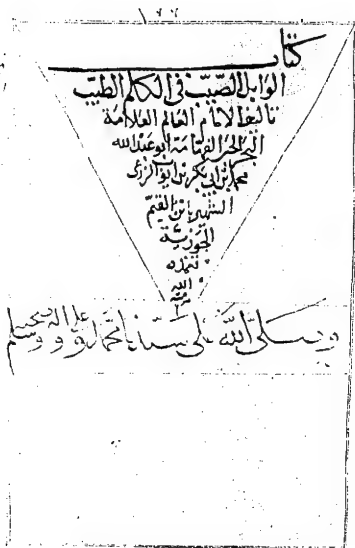 ١٦٦
كتاب
الوابل الصيب في الكلم الطيب
تاليف الامام العالم العلامة
البحر الحبر الفهامة ابو عبد الله
محمد ابن ابي بكر بن ايوب الزرعي
الشهير بابن القيم
الجوزية
تغمده
الله
وصلى الله على سيدنا محمد وعلى اله وصحبه وسلم